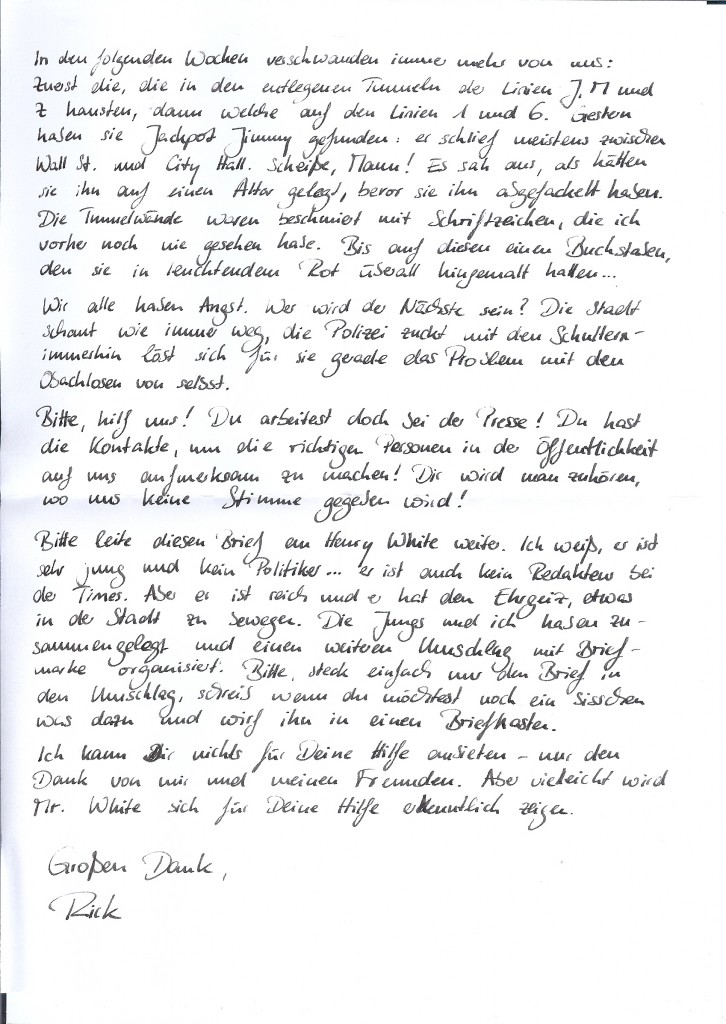 In den folgenden Wochen verschwanden immer mehr von uns:
Zuerst die, die in den entlegenen Tunneln der Linien J, M und
Z hausten, dann welche auf den Linien 1 und 6. Gestern
haben sie Jackpot Jimmy gefunden: er schlief meistens zwischen
Wall St. und City Hall. Scheiße, Mann! Es sah aus, als hätten
sie ihn auf einen Altar gelegt, bevor sie ihn abgefackelt haben.
Die Tunnelwände waren beschmiert mit Schriftzeichen, die ich
vorher noch nie gesehen habe. Bis auf diesen einen Buchstaben,
den sie in leuchtendem Rot überall hingemalt hatten...
Wir alle haben Angst. Wer wird der Nächste sein? Die Stadt
schaut wie immer weg, die Polizei zuckt mit den Schultern -
immerhin löst sich für sie gerade das Problem mit den
Obachlosen von selbst.
Bitte, hilf uns! Du arbeitest doch bei der Presse! Du hast
die Kontakte, um die richtigen Personen in der Öffentlichkeit
auf uns aufmerksam zu machen! Dir wird man zuhören,
wo uns keine Stimme gegeben wird!
Bitte leite diesen Brief an Henry White weiter. Ich weiß, er ist
sehr jung und kein Politiker... er ist auch kein Redakteur bei
der Times. Aber er ist reich und er hat den Ehrgeiz, etwas
in der Stadt zu bewegen. Die Jungs und ich haben zu-
sammengelegt und einen weiteren Umschlag mit Brief-
marke organisiert. Bitte, steck einfach nur den Brief in
den Umschlag, schreib wenn du möchtest noch ein bisschen
was dazu und wirf ihn in einen Briefkasten.
Ich kann Dir nichts für Deine Hilfe anbieten - nur den
Dank von mir und meinen Freunden. Aber vielleicht wird
Mr. White sich für Deine Hilfe erkenntlich zeigen.
Großen Dank,
Rick